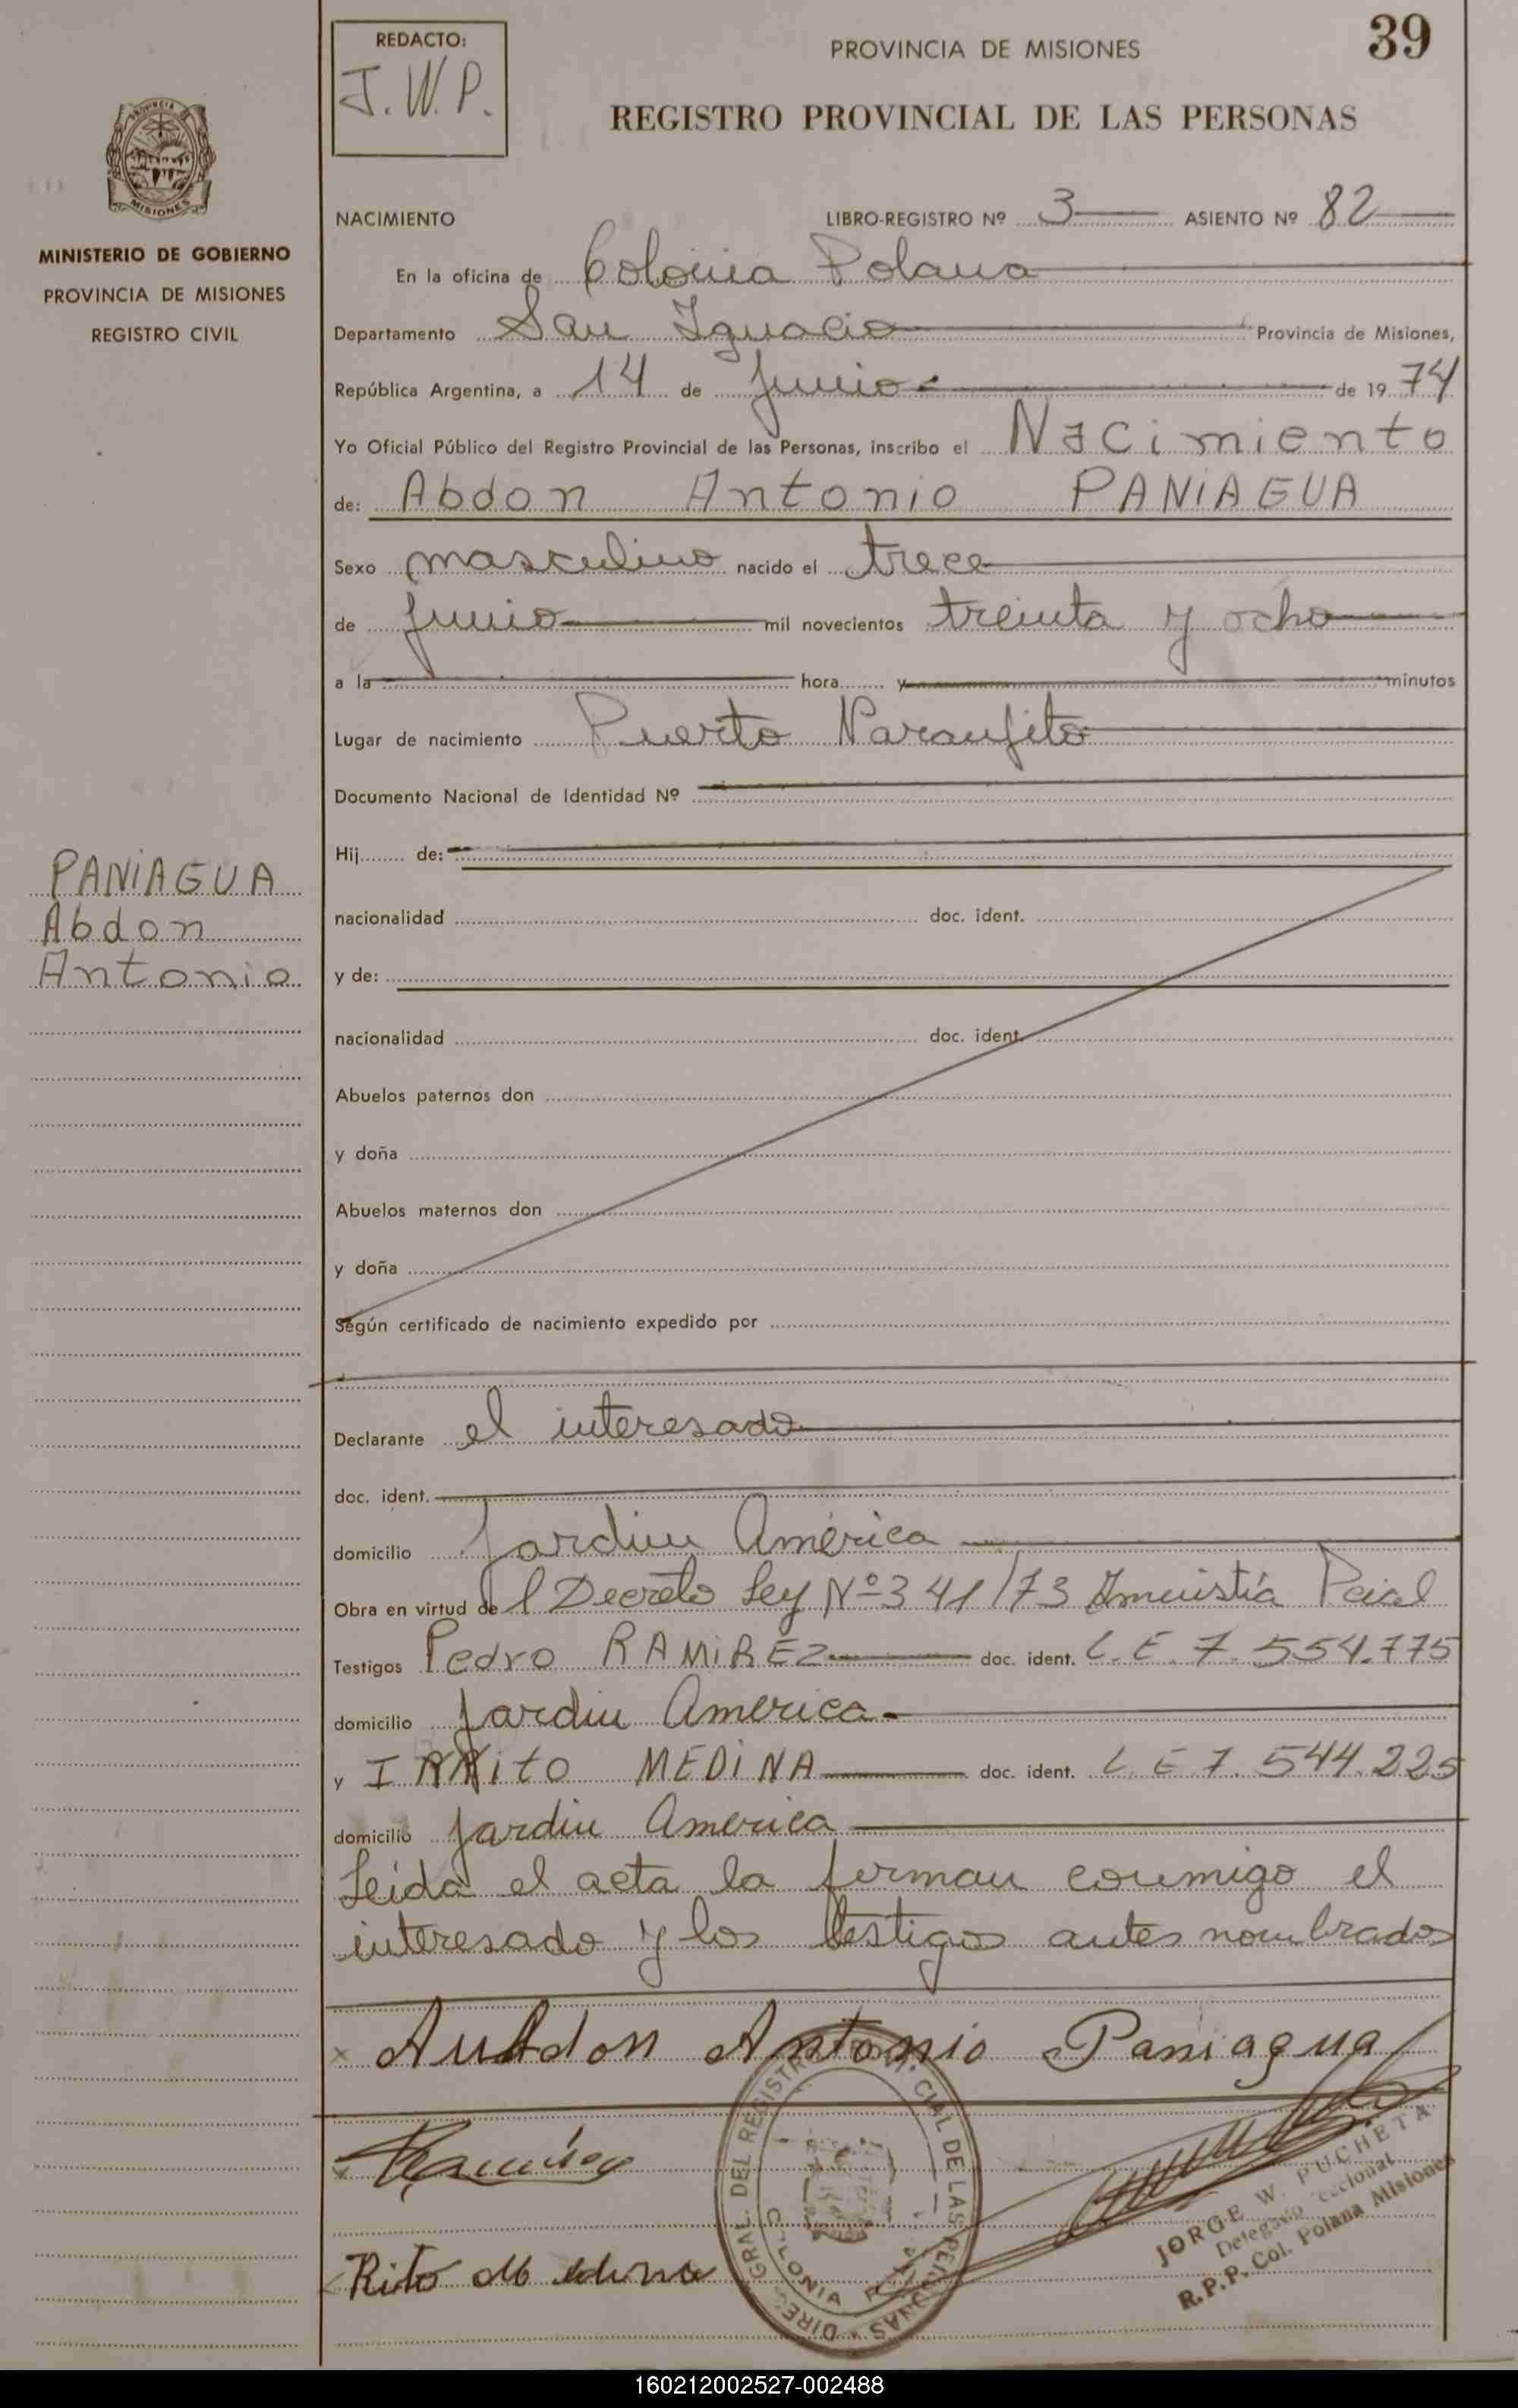 39
REDACTO:
J.W.P.
PROVINCIA DE MISIONES
REGISTRO PROVINCIAL DE LAS PERSONAS
PROVINCIA
MISIONES
MINISTERIO DE GOBIERNO
PROVINCIA DE MISIONES
REGISTRO CIVIL
NACIMIENTO LIBRO-REGISTRO Nº 3 ASIENTO Nº 82
En la oficina de Colonia Polana
Departamento San Ignacio Provincia de Misiones,
República Argentina, a 14 de Junio de 1974
Yo Oficial Público del Registro Provincial de las Personas, inscribo el Nacimiento
de: Abdon Antonio PANIAGUA
Sexo masculino nacido el trece
de Junio mil novecientos treinta y ocho
a la hora y minutos
Lugar de nacimiento Puerto Naranjito
Documento Nacional de Identidad Nº
Hij de:
PANIAGUA
Abdon
Antonio
nacionalidad doc. ident.
y de:
nacionalidad doc. ident.
Abuelos paternos don
y doña
Abuelos maternos don
y doña
Según certificado de nacimiento expedido por
Declarante el interesado
doc. ident.
domicilio Jardin América
Obra en virtud del Decreto Ley Nº 341/73 Amnistía Pcial
Testigos Pedro RAMIREZ doc. ident. L.E. 7.554.775
domicilio Jardin America
y MEDINA doc. ident. L E 7.544.225
domicilio Jardin America
Leida el acta la firman conmigo el
interesado y los testigos antes nombrados
x Antonio Paniagua
Rito
DIREC. GRAL. DEL REGISTRO CIAL DE LAS PERSONAS
COLONIA
JORGE W. PUCHETA
Delegado
R.P.P. Col. Polana Misiones
160212002527-002488